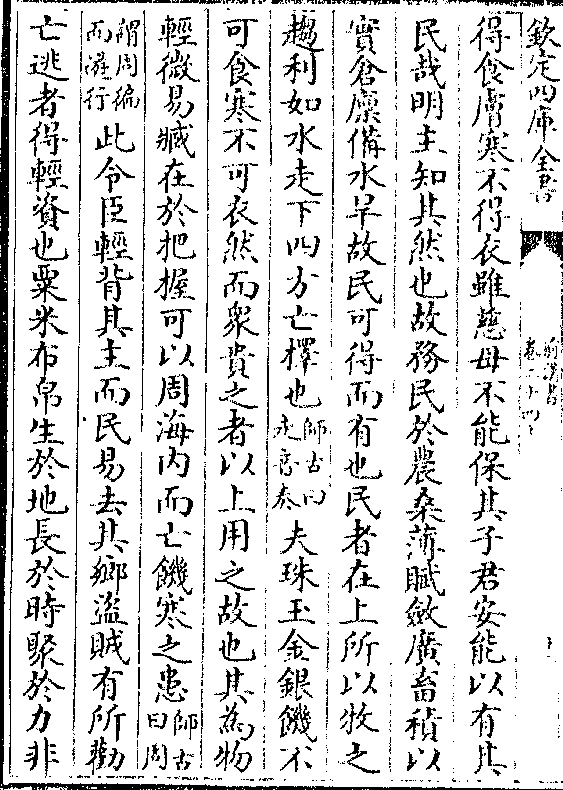 欽定四庫全書
前漢書
卷二十四上
得食膚寒不得衣雖慈母不能保其子君安能以有其
民哉明主知其然也故務民於農桑薄賦斂廣畜積以
實倉廩備水旱故民可得而有也民者在上所以牧之
趨利如水走下四方亡擇也師古曰走音奏夫珠玉金銀饑不
可食寒不可衣然而衆貴之者以上用之故也其為物
輕微易臧在於把握可以周海內而亡饑寒之患師古曰周
謂周徧而游行此令臣輕背其主而民易去其鄉盜賊有所勸
亡逃者得輕資也粟米布帛生於地長於時聚於力非